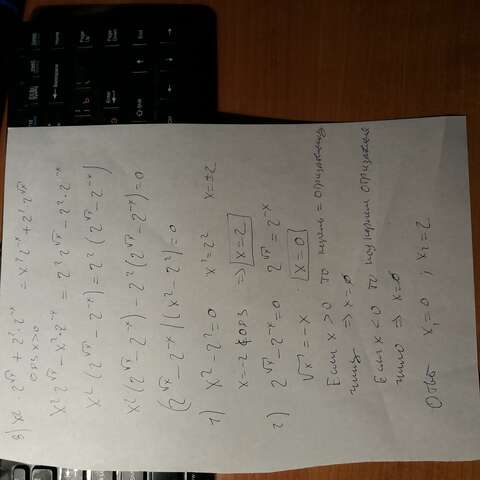 x² · 2^√x + 2² · 2^-x = x² · 2^-x + 2² · 2^√x
ОДЗ x>0
x² 2^√x − x² · 2^-x = 2² 2^√x − 2² · 2^-x
x² (2^√x − 2^-x) = 2² (2^√x − 2^-x)
x² (2^√x − 2^-x) − 2² (2^√x − 2^-x) = 0
(2^√x − 2^-x) (x² − 2²) = 0
1) x² − 2² = 0 x² = 2² x = ±2
x = −2 ∉ ОДЗ ⇒ x = 2
2) 2^√x − 2^-x = 0 2^√x = 2^-x
√x = −x x = 0
Если x > 0 то корень =
⇒ x = 0
Если x < 0 то под корнем
число ⇒ x = 0
Ответ x₁ = 0 ; x₂ = 2